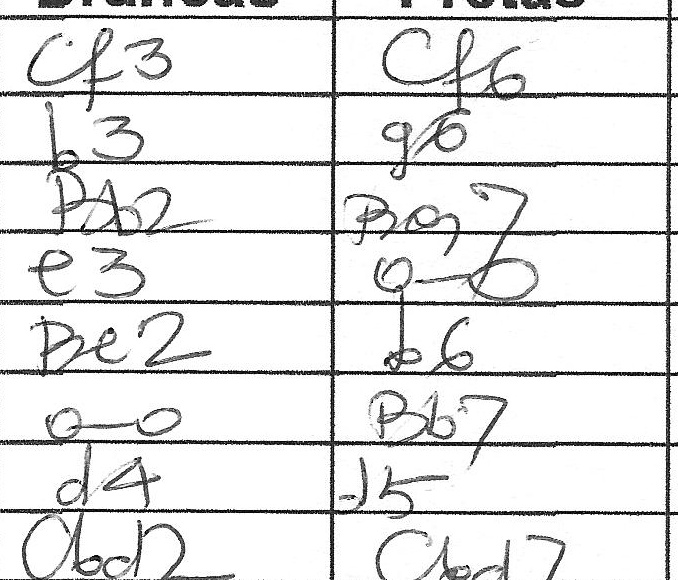 Brancas Pretas
Cf3 Cf6
b3 g6
Bb2 Bg7
e3 0-0
Be2 b6
0-0 Bb7
d4 d5
Cbd2 Cbd7